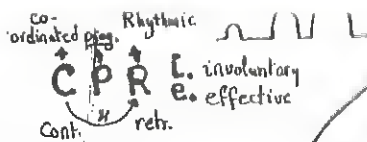 co-
ordinated prog. Rhythmic
C P R
I. involuntary
e. effective
Cont. retr.